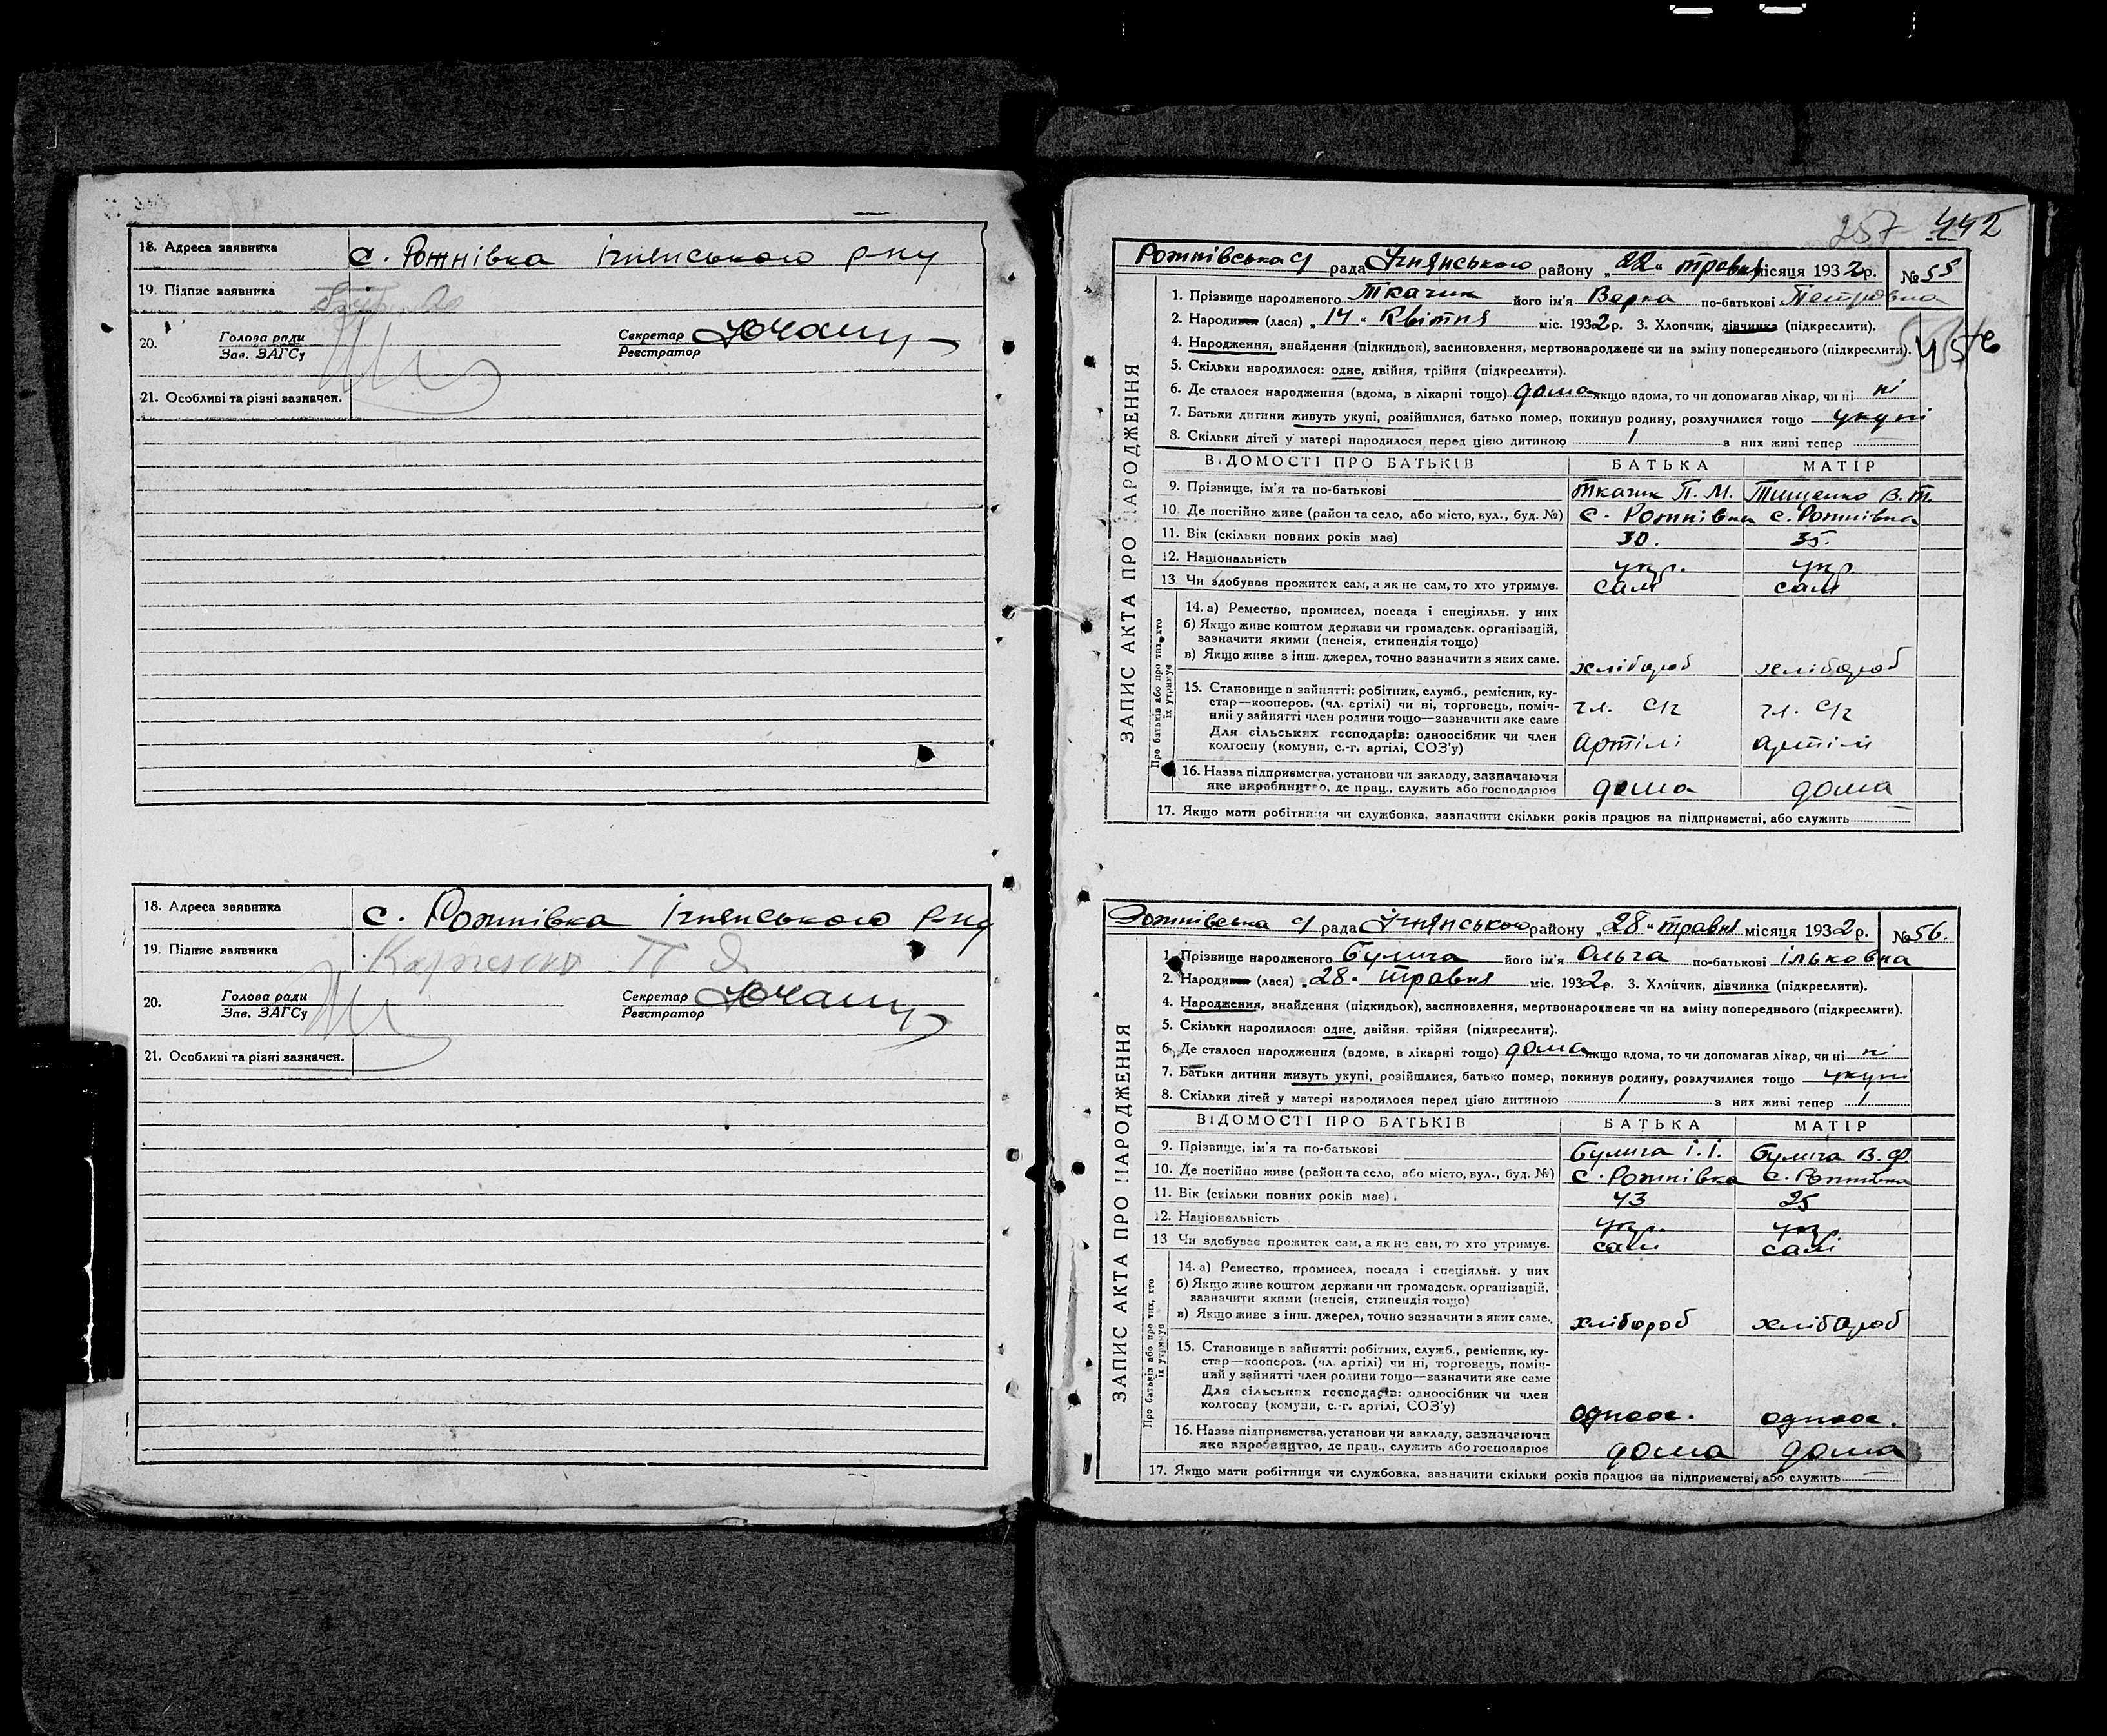 18. Адреса заявника с. Рожнівка Ічнянського р-ну
19. Підпис заявника
20. Голова ради Секретар
Зав. ЗАГСу Реєстратор
21. Особливі та різні зазначен.
18. Адреса заявника с. Рожнівка Ічнянського р-ну
19. Підпис заявника
20. Голова ради Секретар
Зав. ЗАГСу Реєстратор
21. Особливі та різні зазначен.
257 442
ЗАПИС АКТА ПРО НАРОДЖЕННЯ
Рожнівська с/ рада Ічнянського району „22" травня місяця 1932 р. № 55
1. Прізвище народженого Ткачик його ім'я Варка по-батькові Петровна
2. Народився (лася) „14" Квітня міс. 1932 р. 3. Хлопчик, дівчинка (підкреслити).
4. Народження, знайдення (підкидьок), засиновлення, мертвонароджене чи на зміну попереднього (підкреслити).
5. Скільки народилося: одне, двійня, трійня (підкреслити).
6. Де сталося народження (вдома, в лікарні тощо) дома якщо вдома, то чи допомагав лікар, чи ні ні
7. Батьки дитини живуть укупі, розійшлися, батько помер, покинув родину, розлучилися тощо укупі
8. Скільки дітей у матері народилося перед цією дитиною 1 з них живі тепер
ВІДОМОСТІ ПРО БАТЬКІВ БАТЬКА МАТІР
9. Прізвище, ім'я та по-батькові Ткачик П. М. Тищенко В. Т.
10. Де постійно живе (район та село, або місто, вул., буд. №) с. Рожнівка с. Рожнівка
11. Вік (скільки повних років має) 30. 35.
12. Національність укр. укр.
13 Чи здобуває прожиток сам, а як не сам, то хто утримує. сам сам
Про батьків або про тих, хто їх утримує
14. а) Ремество, промисел, посада і спеціяльн. у них
б) Якщо живе коштом держави чи громадськ. організацій,
зазначити якими (пенсія, стипендія тощо)
в) Якщо живе з інш. джерел, точно зазначити з яких саме. хлібороб хлібороб
15. Становище в зайнятті: робітник, служб., ремісник, ку-
стар—кооперов. (чл. артілі) чи ні, торговець, поміч- чл. с/г чл. с/г
ний у зайнятті член родини тощо—зазначити яке саме
Для сільських господарів: одноосібник чи член
колгоспу (комуни, с.-г. артілі, СОЗ'у) Артілі артілі
16. Назва підприємства, установи чи закладу, зазначаючи
яке виробництво, де прац., служить або господарює дома дома
17. Якщо мати робітниця чи службовка, зазначити скільки років працює на підприємстві, або служить
ЗАПИС АКТА ПРО НАРОДЖЕННЯ
Рожнівська с/ рада Ічнянського району „28" травня місяця 1932 р. № 56.
1. Прізвище народженого Булига його ім'я Ольга по-батькові ільковна
2. Народився (лася) „28" травня міс. 1932 р. 3. Хлопчик, дівчинка (підкреслити).
4. Народження, знайдення (підкидьок), засиновлення, мертвонароджене чи на зміну попереднього (підкреслити).
5. Скільки народилося: одне, двійня, трійня (підкреслити).
6. Де сталося народження (вдома, в лікарні тощо) дома якщо вдома, то чи допомагав лікар, чи ні ні
7. Батьки дитини живуть укупі, розійшлися, батько помер, покинув родину, розлучилися тощо укупі
8. Скільки дітей у матері народилося перед цією дитиною 1 з них живі тепер 1
ВІДОМОСТІ ПРО БАТЬКІВ БАТЬКА МАТІР
9. Прізвище, ім'я та по-батькові Булига І. І. Булига В. Ф.
10. Де постійно живе (район та село, або місто, вул., буд. №) с. Рожнівка с. Рожнівка
11. Вік (скільки повних років має) 43 25
12. Національність укр. укр.
13 Чи здобуває прожиток сам, а як не сам, то хто утримує. сам самі
Про батьків або про тих, хто їх утримує
14. а) Ремество, промисел, посада і спеціяльн. у них
б) Якщо живе коштом держави чи громадськ. організацій,
зазначити якими (пенсія, стипендія тощо)
в) Якщо живе з інш. джерел, точно зазначити з яких саме. хлібороб хлібороб
15. Становище в зайнятті: робітник, служб., ремісник, ку-
стар—кооперов. (чл. артілі) чи ні, торговець, поміч-
ний у зайнятті член родини тощо—зазначити яке саме
Для сільських господарів: одноосібник чи член
колгоспу (комуни, с.-г. артілі, СОЗ'у) одноос. одноос.
16. Назва підприємства, установи чи закладу, зазначаючи
яке виробництво, де прац., служить або господарює дома дома
17. Якщо мати робітниця чи службовка, зазначити скільки років працює на підприємстві, або служить